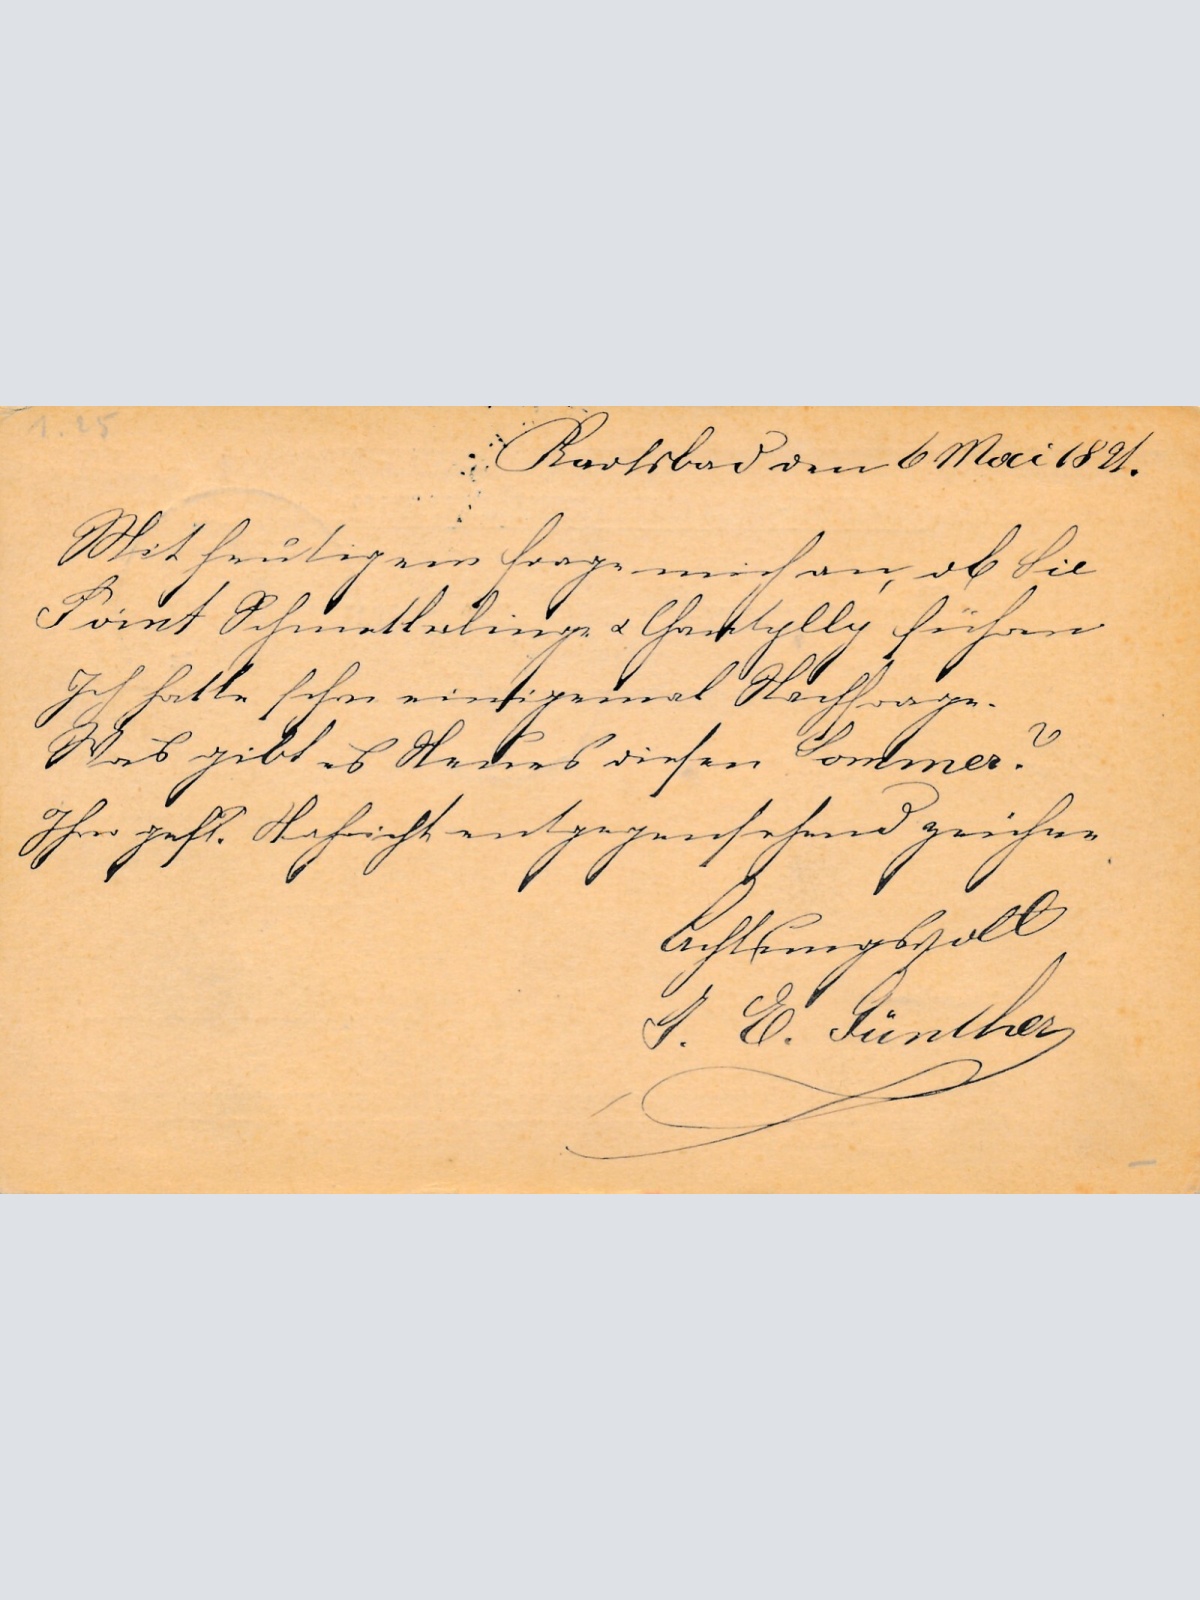 1.25
Karlsbad den 6 Mai 1891.
Mit heutigem frage mich an, ob Sie
Point Schmetterlinge & Chantylly führen
Ich hatte schon einigemal Nachfrage.
Was gibt es Neues diesen Sommer?
Ihrer gefl. Nachricht entgegensehend zeichne
Achtungsvoll
J. E. Günther